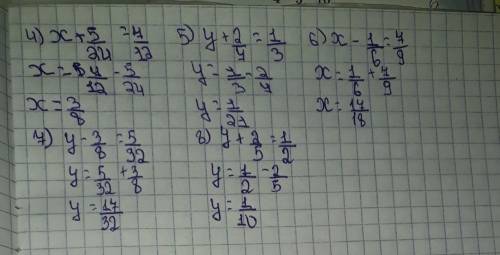 4) x + 5/24 = 7/12
x = 7/12 - 5/24
x = 3/8
5) y + 2/7 = 1/3
y = 1/3 - 2/7
y = 1/21
6) x - 1/6 = 7/9
x = 1/6 + 7/9
x = 17/18
7) y - 3/8 = 5/32
y = 5/32 + 3/8
y = 17/32
8) y + 2/5 = 1/2
y = 1/2 - 2/5
y = 1/10